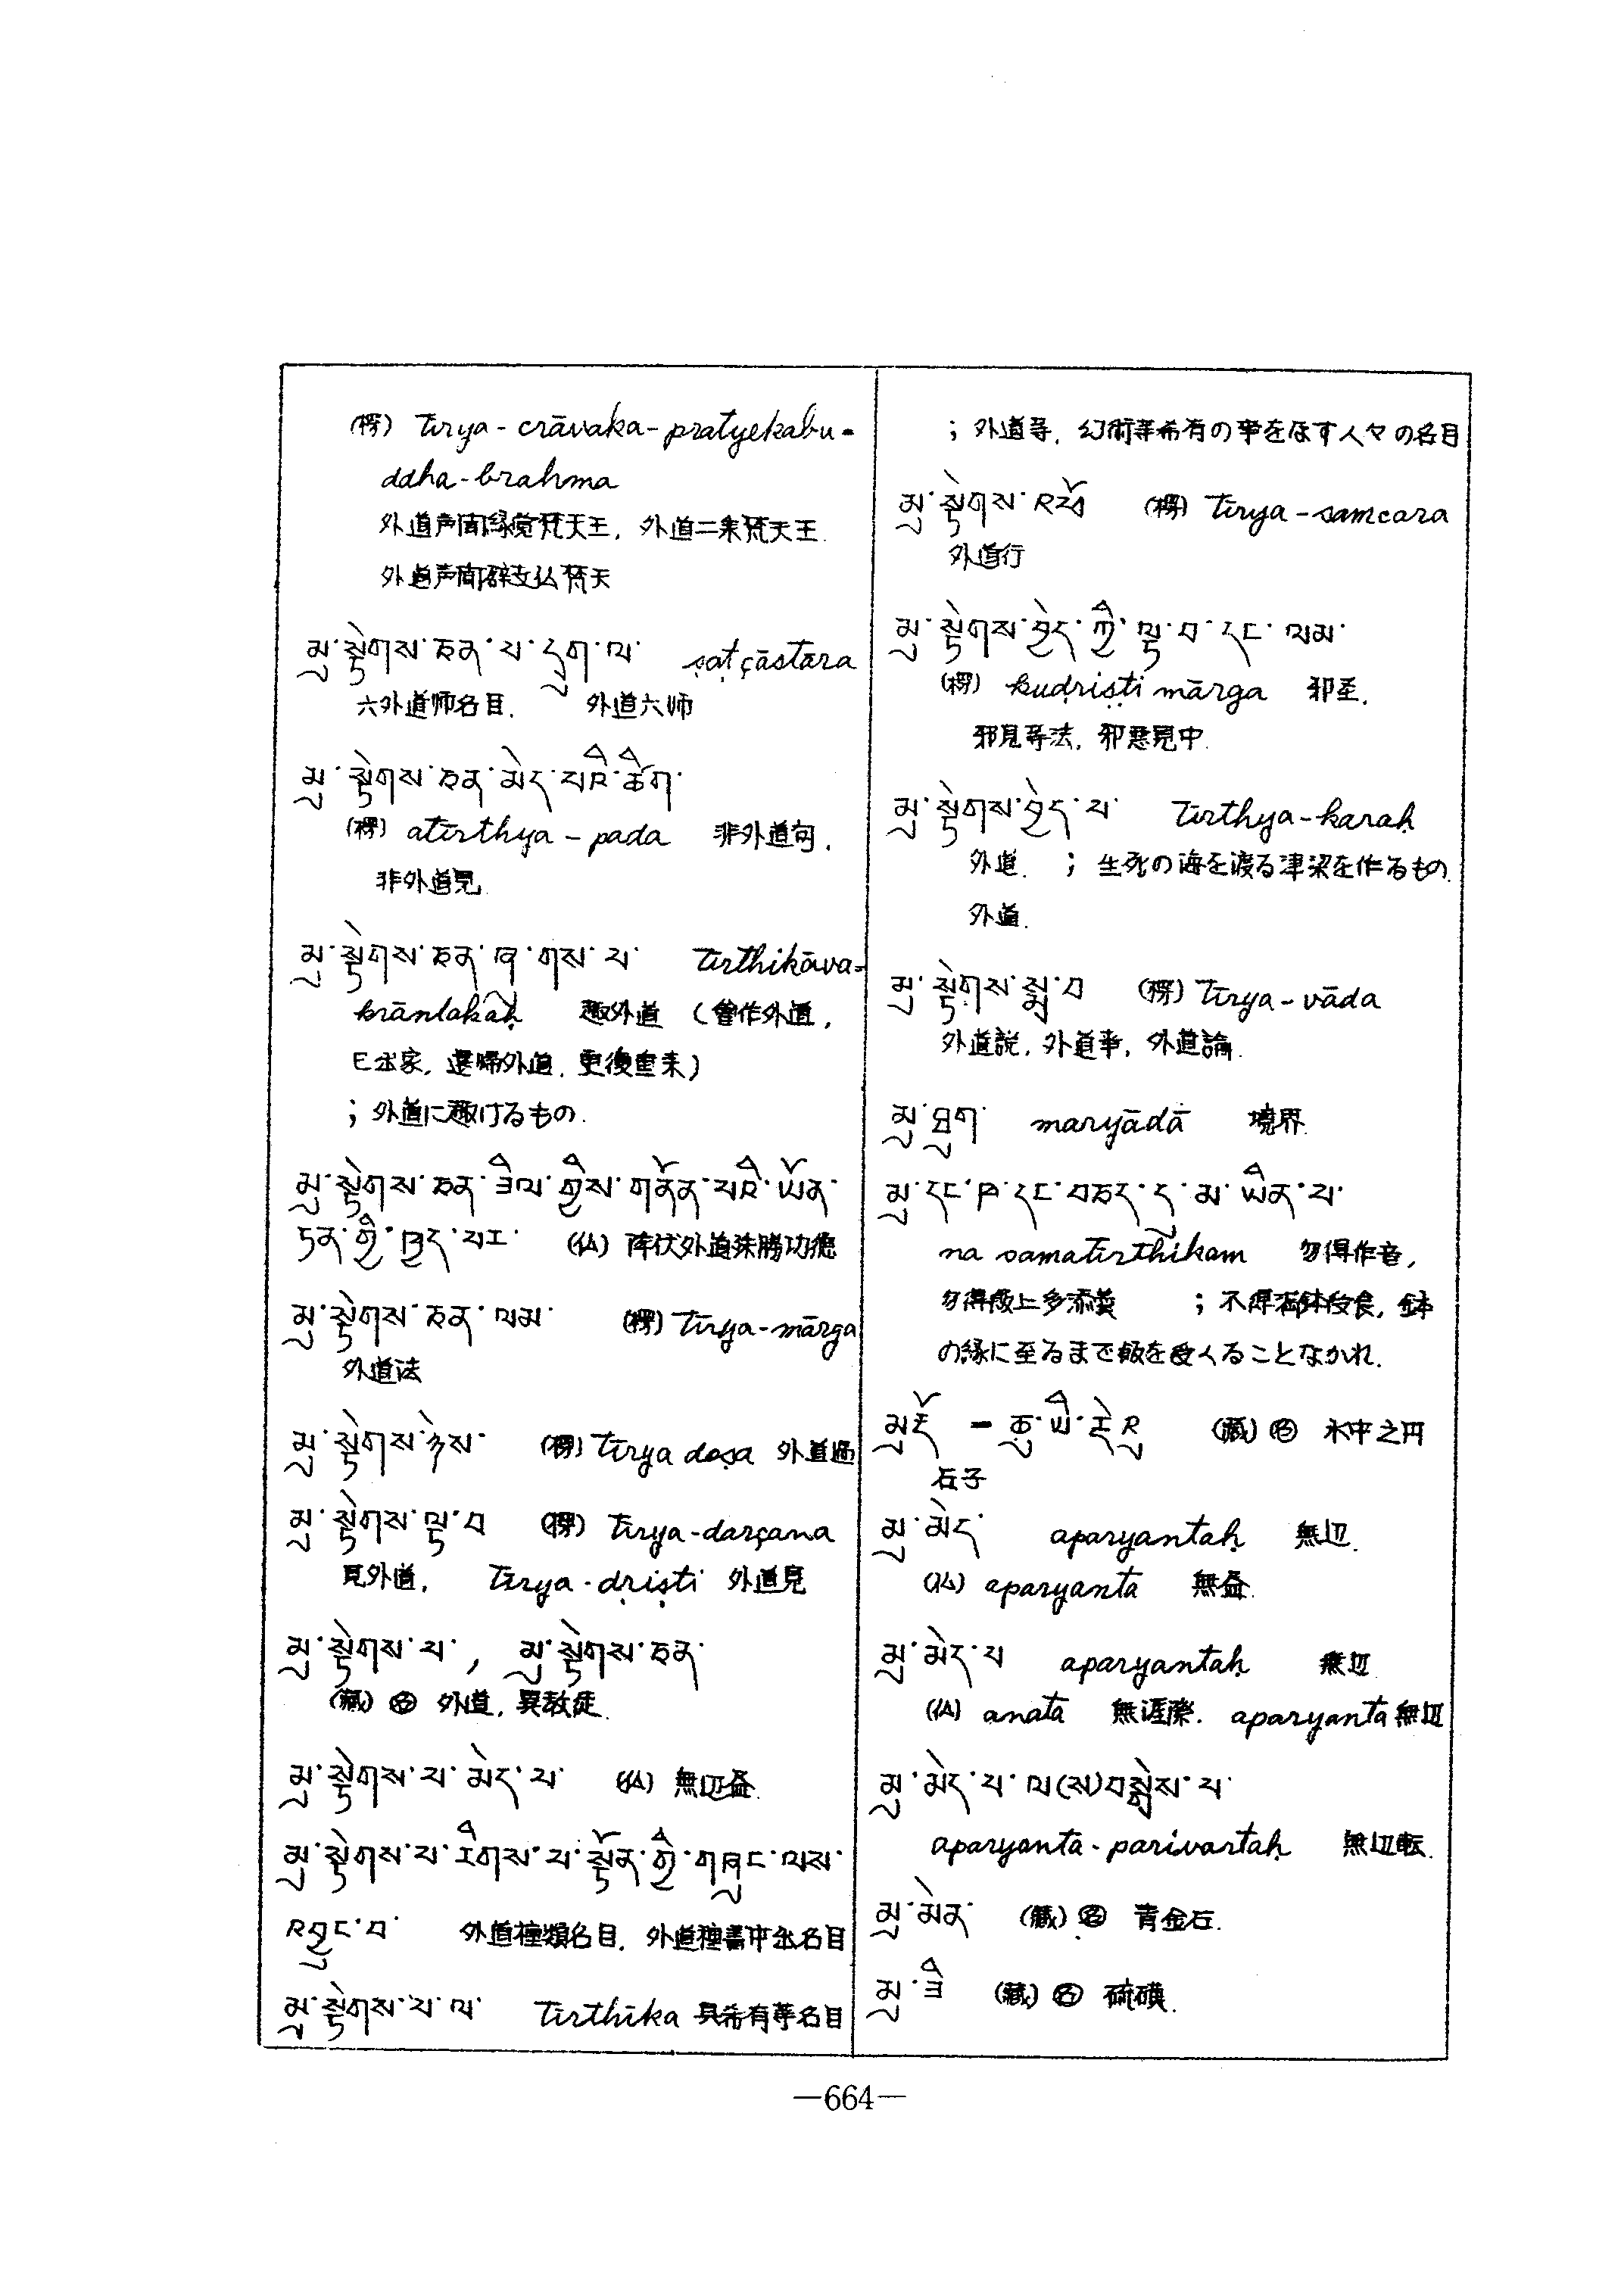 (楞) Tīrya-crāvaka-pratyekabu-
ddha-brahma
外道声闻缘觉梵天王, 外道二乘梵天王.
外道声闻辟支仏梵天
མུ་སྟེགས་ཅན་པ་དྲུག་ལ་ ṣaṭçāstāra
六外道师名目. 外道六师
མུ་སྟེགས་ཅན་མེད་པའི་ཚིག་
(楞) atīrthya-pada 非外道句,
非外道見.
མུ་སྟེགས་ཅན་ཞུགས་པ་ tīrthikāva-
krāntakaḥ 趣外道 (曾作外道,
已出家, 還歸外道, 更復重来)
; 外道に趣けるもの.
མུ་སྟེགས་ཅན་ཟིལ་གྱིས་གནོན་པའི་ཡོན་
ཏན་གྱི་ཁྱད་པར་ (仏) 降伏外道殊勝功徳
མུ་སྟེགས་ཅན་ལམ་ (楞) Tīrya-mārga
外道法
མུ་སྟེགས་ཉེས་ (楞) Tīrya doṣa 外道過
མུ་སྟེགས་ལྟ་བ (楞) Tīrya-darçana
見外道, Tīrya-dṛiṣṭi 外道見
མུ་སྟེགས་པ་, མུ་སྟེགས་ཅན་
(蔵) 名 外道, 異教徒.
མུ་སྟེགས་པ་མེད་པ་ (仏) 無辺益.
མུ་སྟེགས་པ་རིགས་པ་སྟོན་གྱི་གཞུང་ལས་
འབྱུང་བ་ 外道種類名目, 外道種書中出名目
མུ་སྟེགས་པ་ལ་ Tīrthika 具希有等名目
; 外道等, 幻術等希有の事をなす人々の名目
མུ་སྟེགས་འཛོ (楞) Tīrya-samcara
外道行
མུ་སྟེགས་བྱེད་ཀྱི་ལྟ་བ་དང་ལམ་
(楞) kudṛiṣṭi mārga 邪至,
邪見等法, 邪悪見中.
མུ་སྟེགས་བྱེད་པ་ Tīrthya-karaḥ
外道. ; 生死の海を渡る津梁を作るもの.
外道.
མུ་སྟེགས་སྨྲ་བ (楞) Tīrya-vāda
外道説, 外道事, 外道論.
མུ་ཐུག་ maryādā 境界.
མུ་དང་ཁ་དང་བཅད་དུ་མ་ཡིན་པ་
na samatīrthikam 勿得作音,
勿得飯上多添羹 ; 不得满鉢受食, 鉢
の縁に至るまで飯を受くることなかれ.
མུ་རྡོ — ཆུ་ཡི་རྡེའུ (蔵) 名 水中之円
石子
མུ་མེད་ aparyantaḥ 無辺.
(仏) aparyanta 無益.
མུ་མེད་པ aparyantaḥ 無辺
(仏) anata 無涯際. aparyanta 無辺
མུ་མེད་པ་ལ(ས)བསྒྱེས་པ་
aparyanta-parivartaḥ 無辺転.
མུ་མེན་ (蔵) 名 青金石.
མུ་ཟི (蔵) 名 硫磺.
—664—